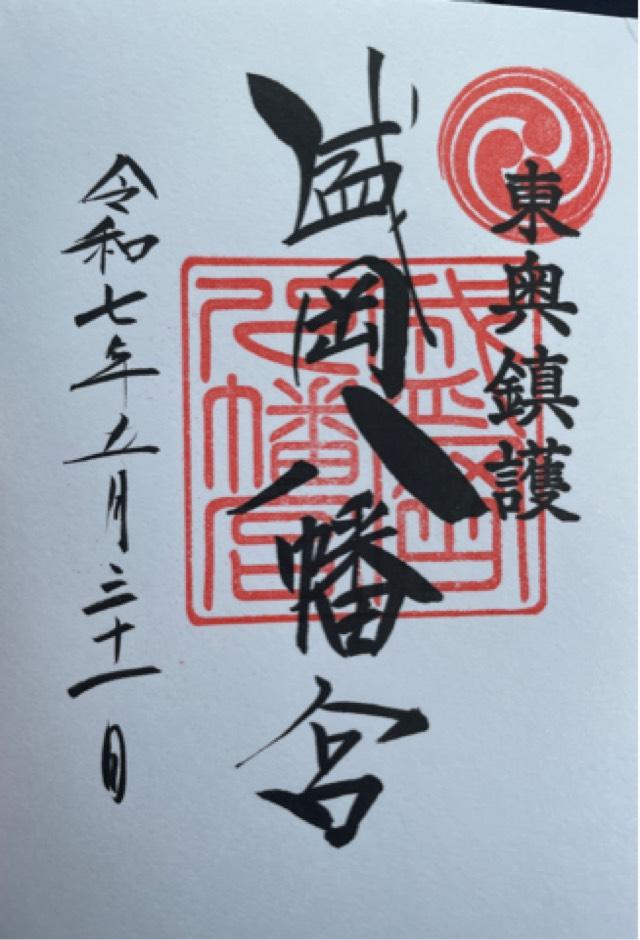 東奥鎮護
盛岡八幡宮
盛岡八幡宮
令和七年五月三十一日